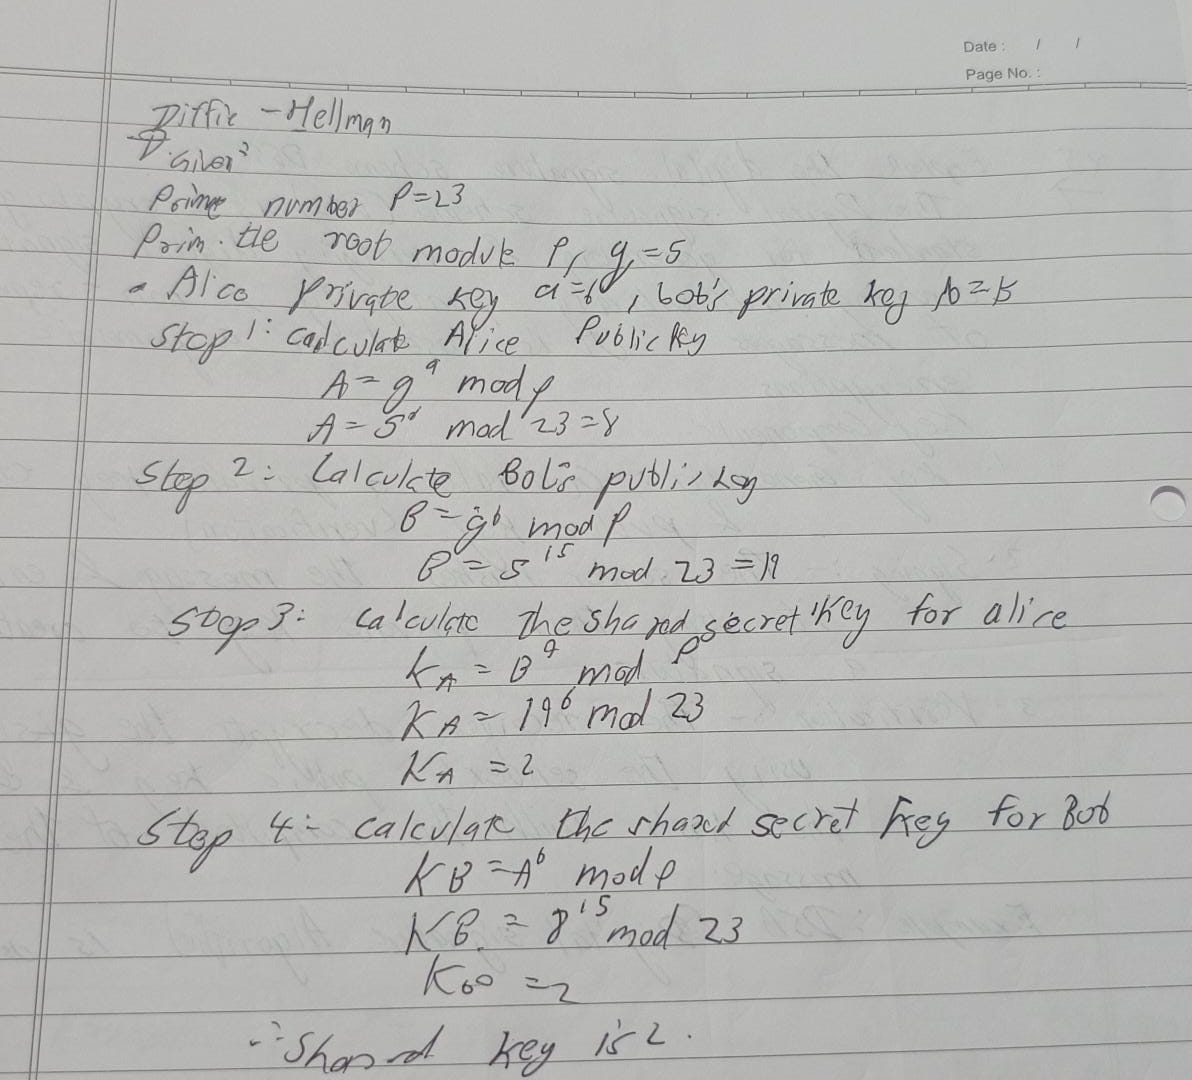 Date : / /
Page No. :
Diffie - Hellman
Given
Prime number P=23
Prim. tle root module P, g=5
• Alice private key a=6, bob's private key b=15
Step 1: Calculate Alice Public key
A = g^a mod p
A = 5^6 mod 23 = 8
Step 2: Calculate Bob's public key
B = g^b mod P
B = 5^15 mod 23 = 19
Step 3: calculate The shared secret key for alice
K_A = B^a mod P
K_A = 19^6 mod 23
K_A = 2
Step 4:- calculate the shared secret key for Bob
KB = A^b mod p
KB = 8^15 mod 23
= 2
∴ Shared key is 2.